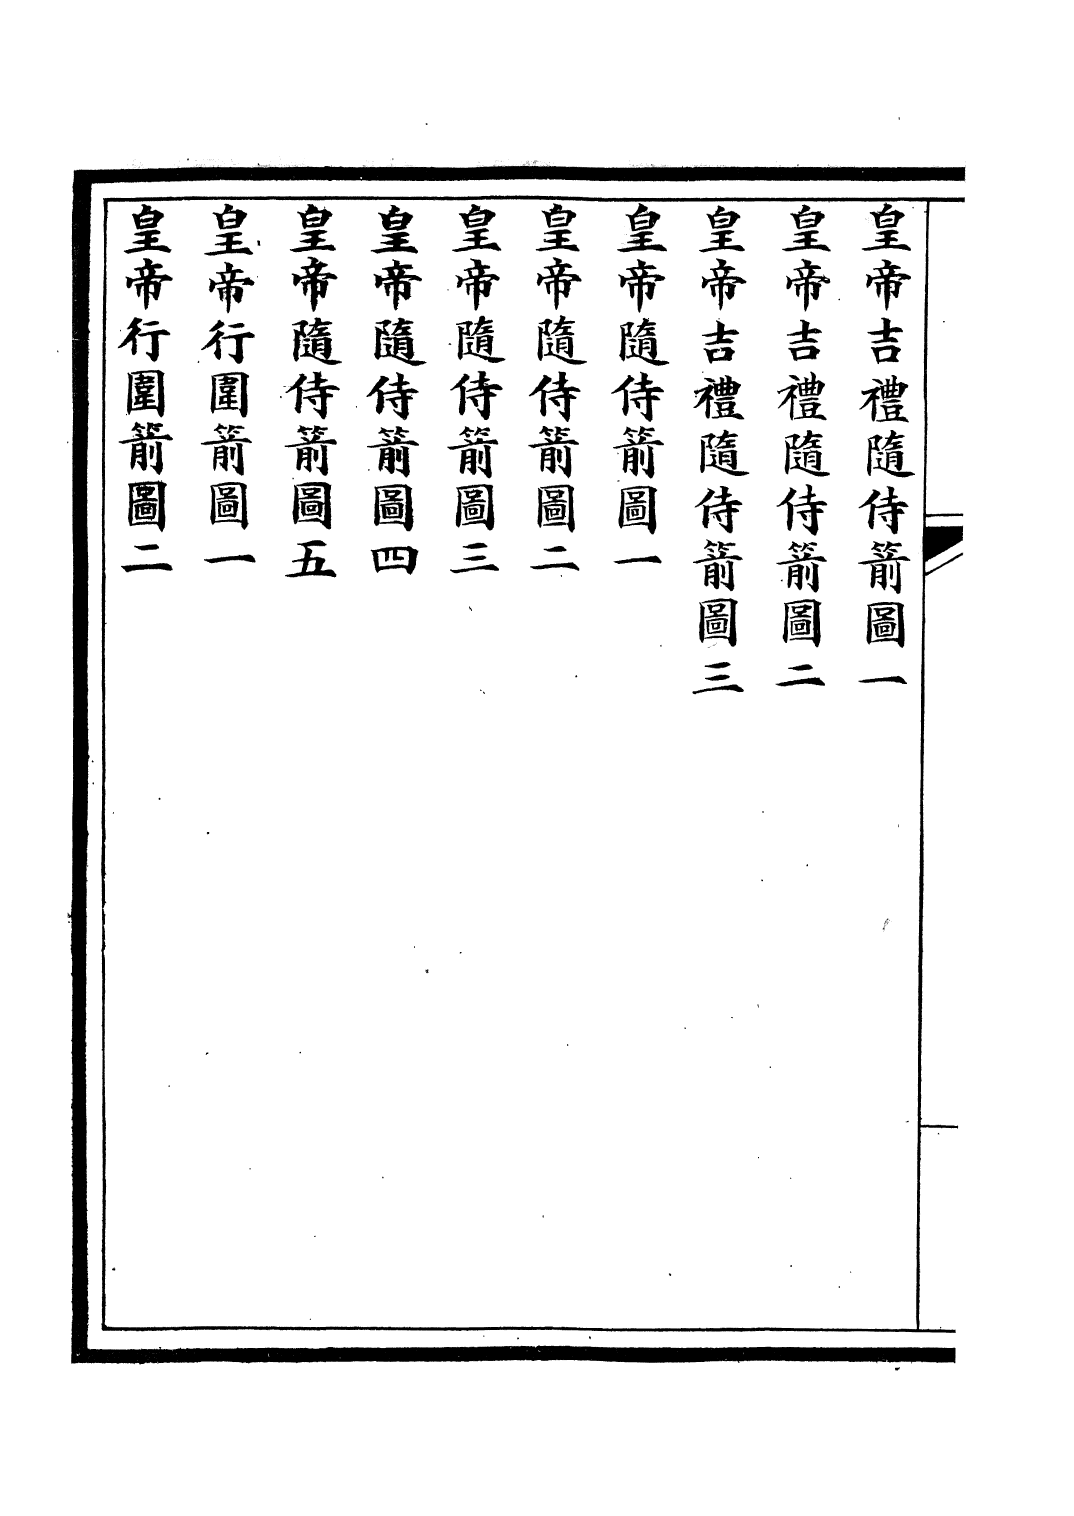 皇帝吉禮隨侍箭圖一
皇帝吉禮隨侍箭圖二
皇帝吉禮隨侍箭圖三
皇帝隨侍箭圖一
皇帝隨侍箭圖二
皇帝隨侍箭圖三
皇帝隨侍箭圖四
皇帝隨侍箭圖五
皇帝行圍箭圖一
皇帝行圍箭圖二